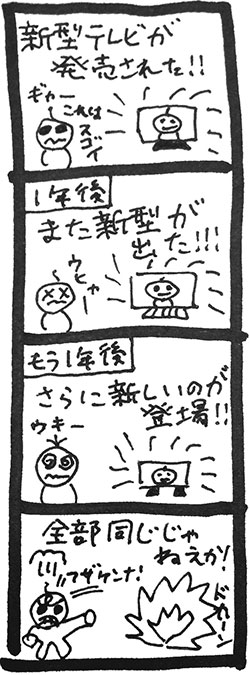 新型テレビが
発売された!!
ギャー
これは
スゴイ
1年後
また新型が
出た!!!
ウヒャー
もう1年後
さらに新しいのが
登場!!
ウキー
全部同じじゃ
ねえか!
フザケンナ!
ドカーン